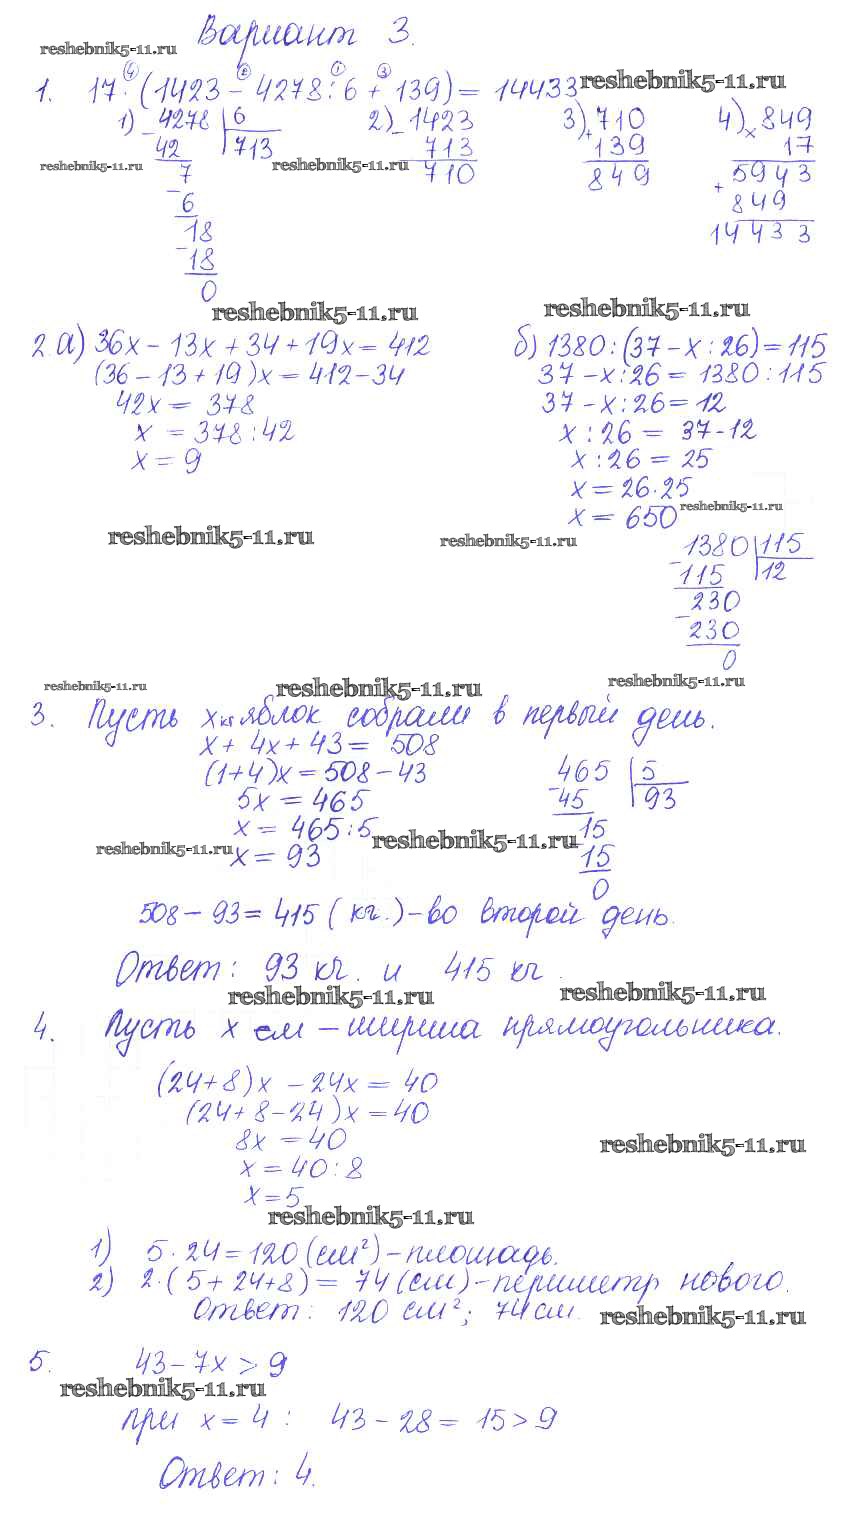 Вариант 3.
reshebnik5-11.ru
④ ② ① ③
1. 17·(1423 - 4278:6 + 139) = 14433 reshebnik5-11.ru
1) 4278 | 6 2) 1423 3) 710 4) 849
- 42 713 - 713 + 139 × 17
reshebnik5-11.ru 7 reshebnik5-11.ru 710 849 5943
- 6 + 849
18 14433
- 18
0
reshebnik5-11.ru reshebnik5-11.ru
2. а) 36x - 13x + 34 + 19x = 412
(36 - 13 + 19)x = 412 - 34
42x = 378
x = 378:42
x = 9
б) 1380:(37 - x:26) = 115
37 - x:26 = 1380:115
37 - x:26 = 12
x:26 = 37-12
x:26 = 25
x = 26·25
x = 650 reshebnik5-11.ru
reshebnik5-11.ru reshebnik5-11.ru
1380 | 115
- 115 12
230
- 230
0
reshebnik5-11.ru reshebnik5-11.ru reshebnik5-11.ru
3. Пусть x кг яблок собрали в первый день.
x + 4x + 43 = 508
(1+4)x = 508 - 43
5x = 465
x = 465:5 reshebnik5-11.ru
reshebnik5-11.ru x = 93
465 | 5
- 45 93
15
15
0
508 - 93 = 415 (кг.) - во второй день.
Ответ: 93 кг. и 415 кг.
reshebnik5-11.ru reshebnik5-11.ru
4. Пусть x см - ширина прямоугольника.
(24+8)x - 24x = 40
(24+8-24)x = 40
8x = 40
x = 40:8
x = 5
reshebnik5-11.ru
reshebnik5-11.ru
1) 5·24 = 120 (см²) - площадь.
2) 2·(5+24+8) = 74 (см) - периметр нового.
Ответ: 120 см²; 74 см. reshebnik5-11.ru
5. 43 - 7x > 9
reshebnik5-11.ru
при x = 4: 43 - 28 = 15 > 9
Ответ: 4.